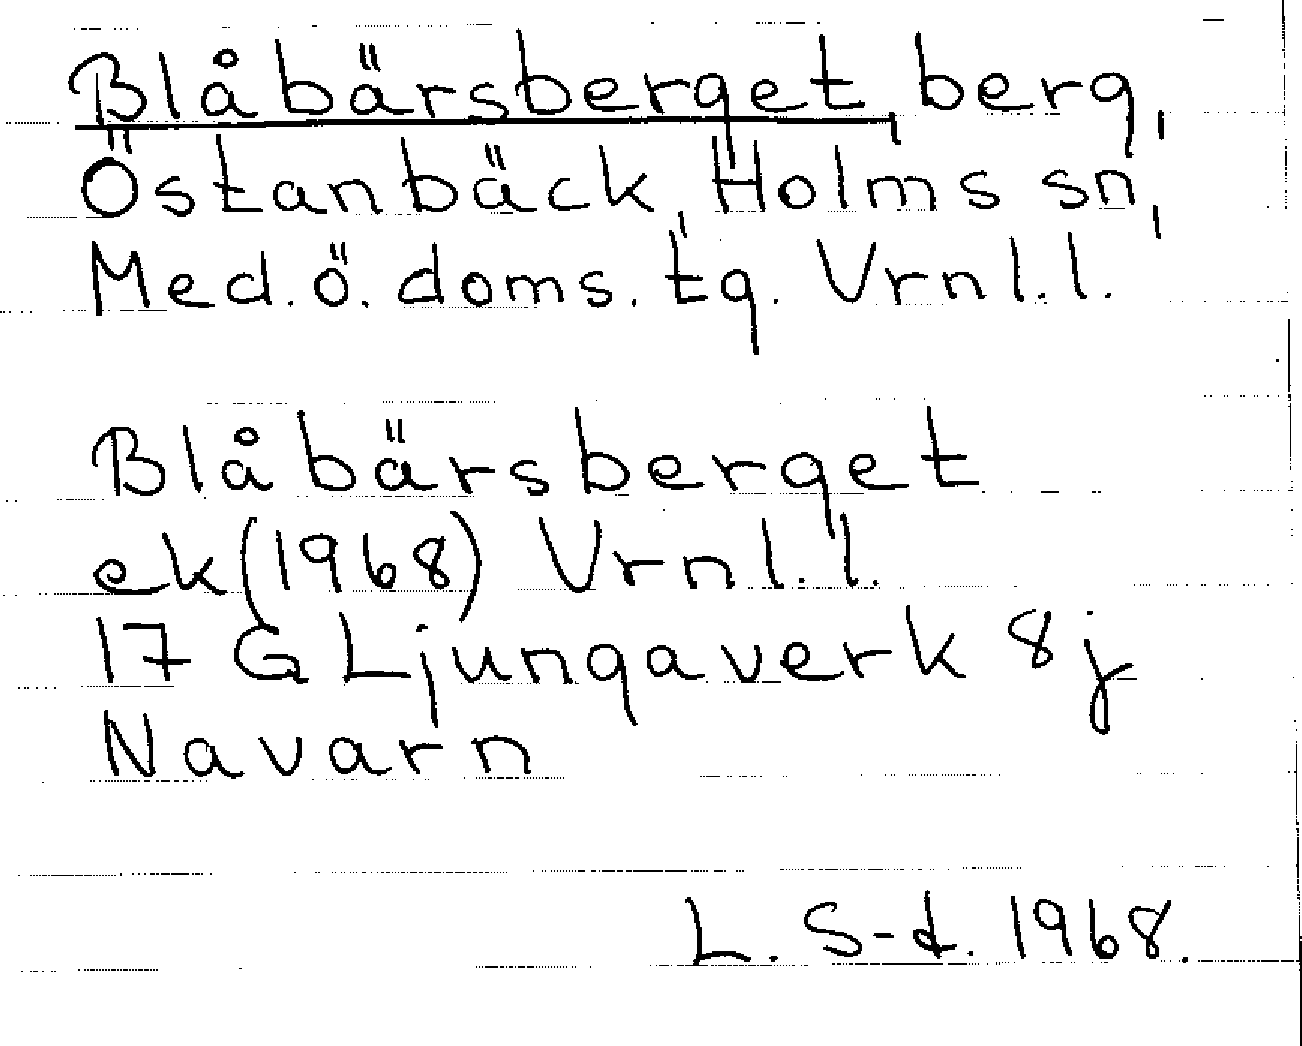 Blåbärsberget, berg,
Östanbäck, Holms sn,
Med. ö. doms. tg. Vrnl.l.
Blåbärsberget
ek(1968) Vrnl.l.
17 G Ljungaverk 8j
Navarn
L. S-d. 1968.